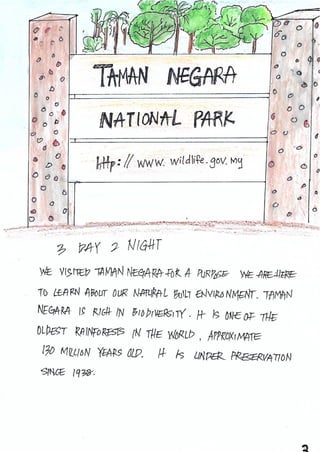 TAMAN NEGARA
NATIONAL PARK
http://www.wildlife.gov.my
3 DAY 2 NIGHT
WE VISITED TAMAN NEGARA FOR A PURPOSE WE ARE HERE
TO LEARN ABOUT OUR NATURAL BUILT ENVIRONMENT. TAMAN
NEGARA IS RICH IN BIODIVERSITY. IT IS ONE OF THE
OLDEST RAINFORESTS IN THE WORLD, APPROXIMATE
130 MILLION YEARS OLD. IT IS UNDER PRESERVATION
SINCE 1938.
3